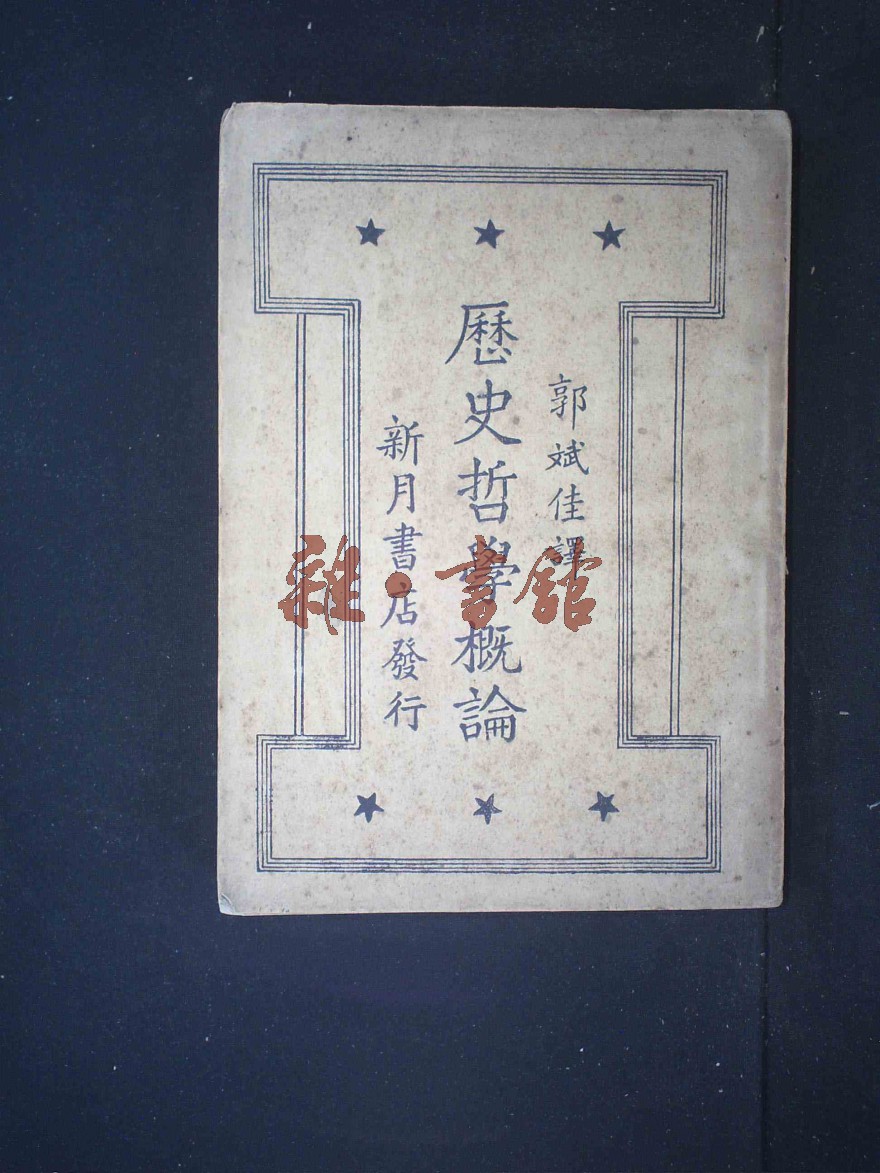 郭斌佳譯
歷史哲學概論
新月書店發行
雜·書館